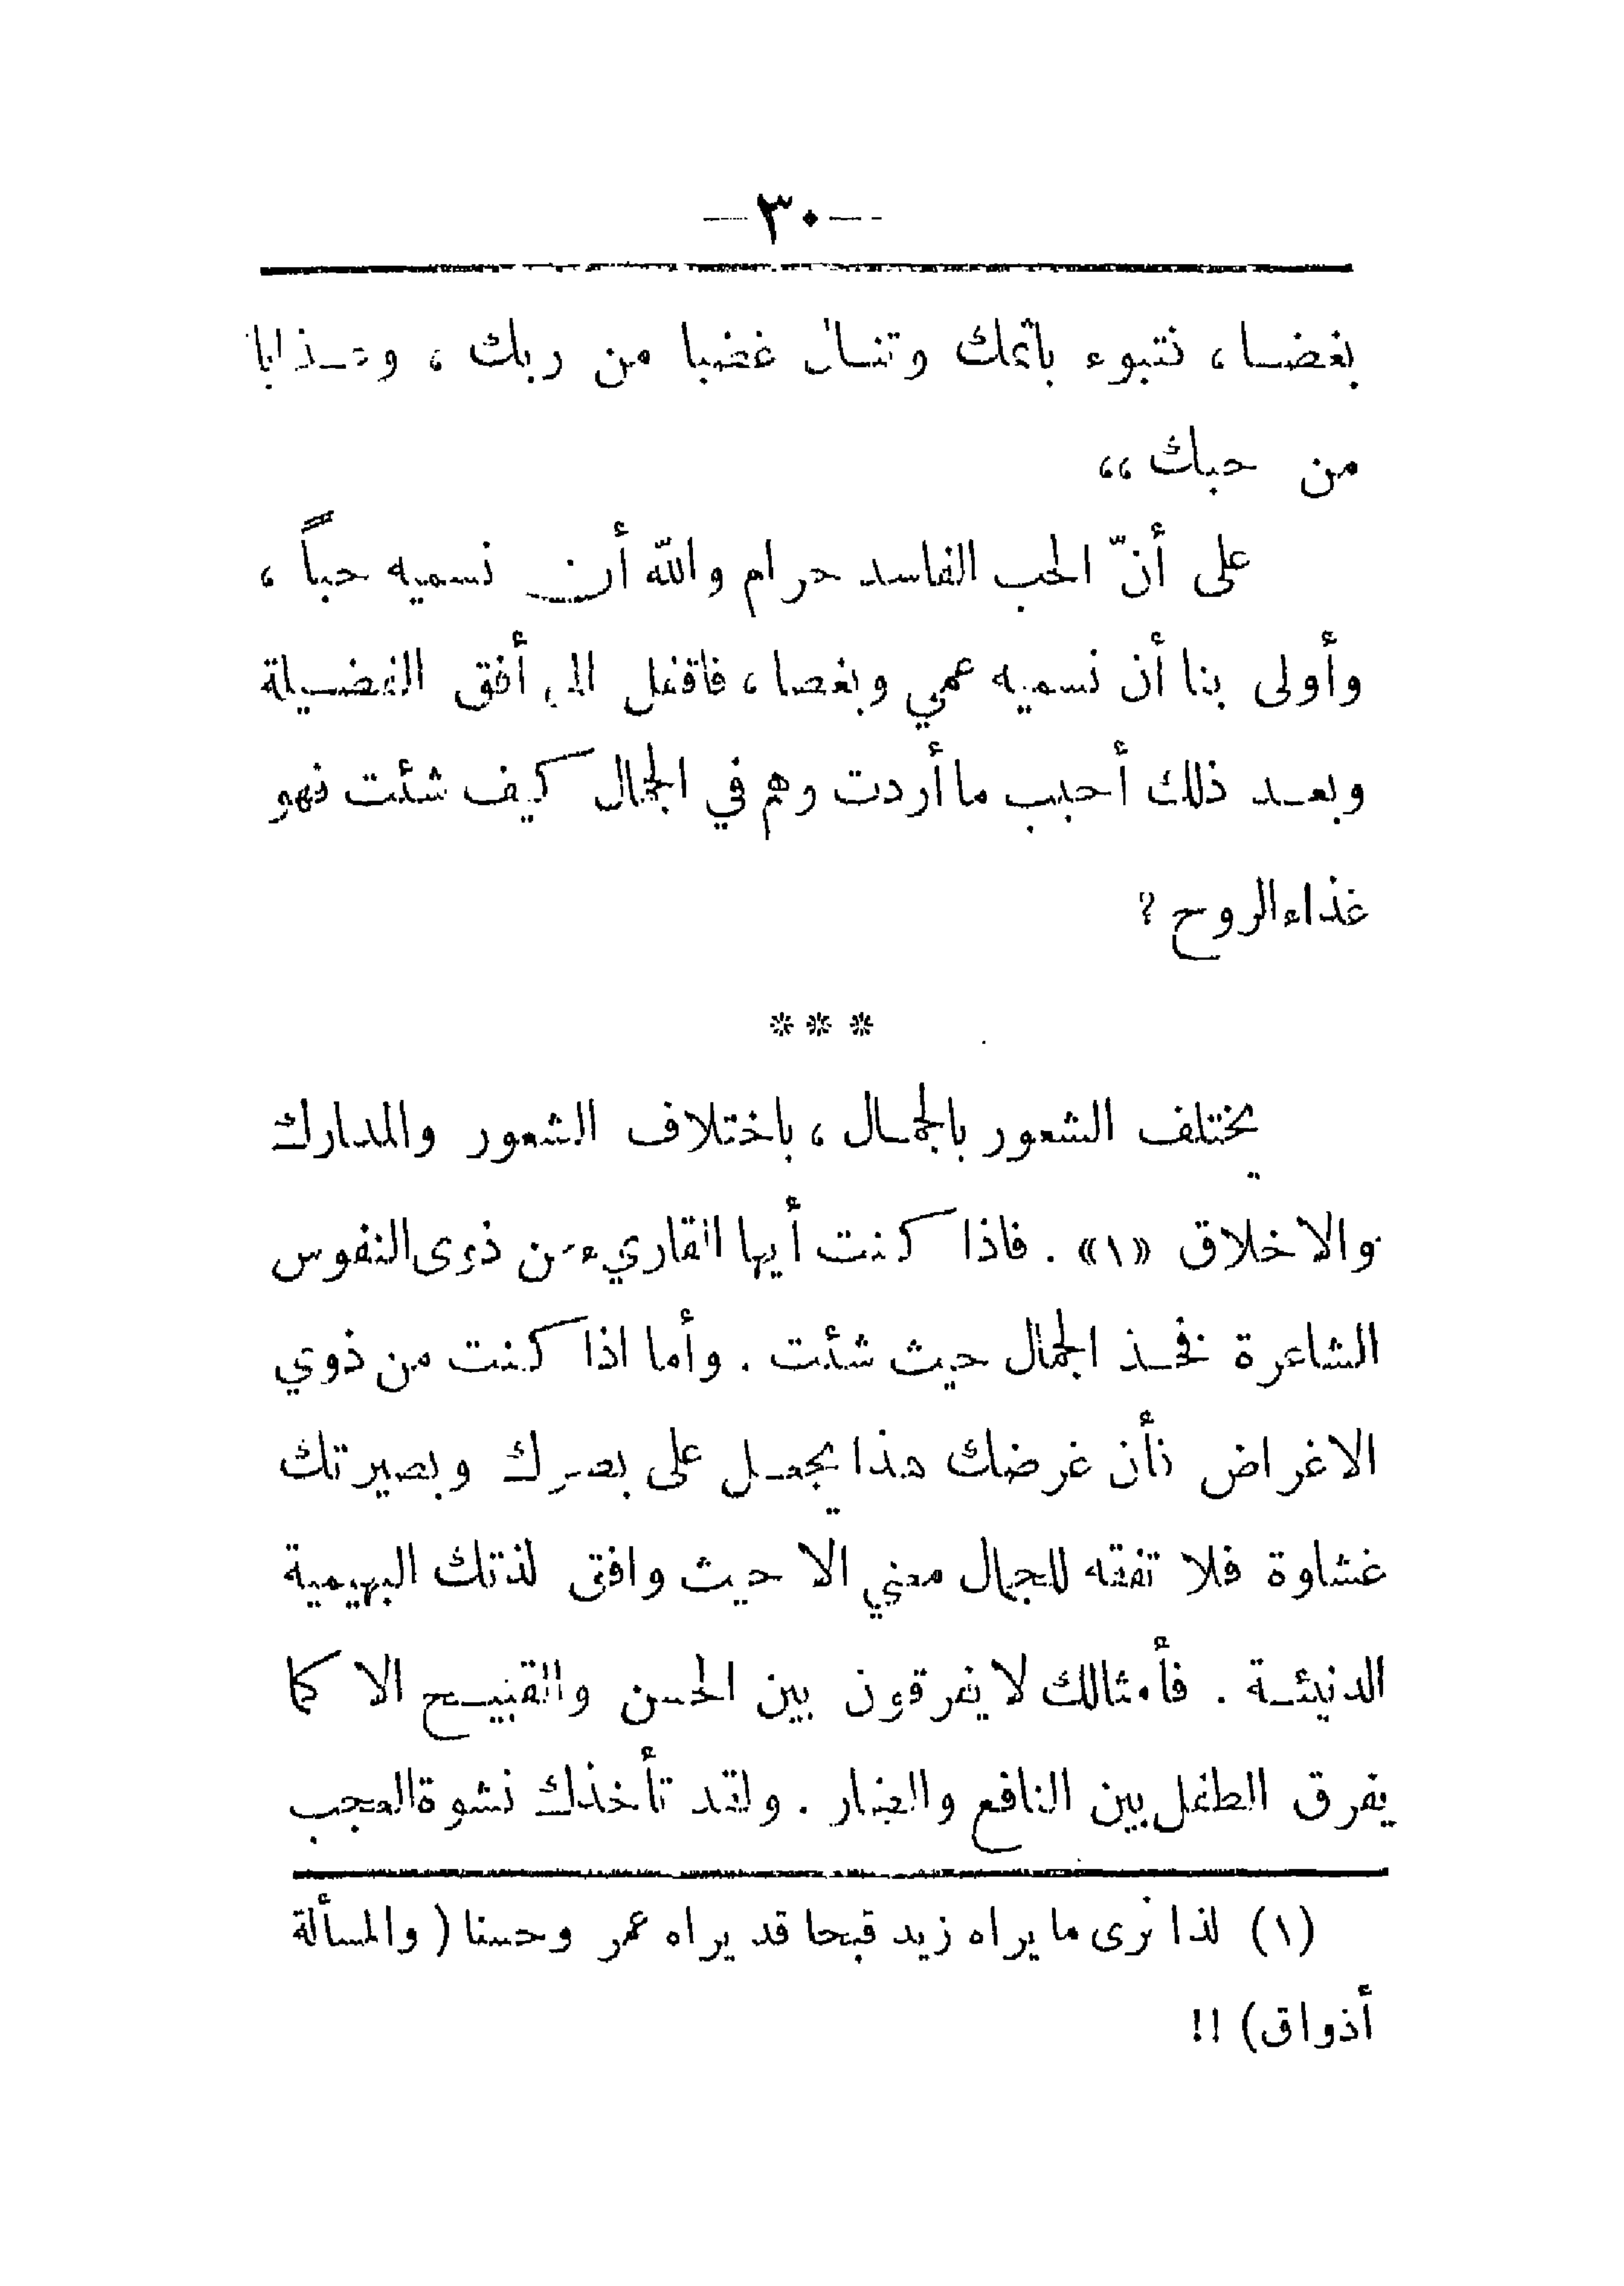 —٣٠—
بغضا، فتبوء باثمك وتنال غضبا من ربك ، وعذابا
من حبك ،،
على أنّ الحب الفاسد حرام والله أن نسميه حباً ،
وأولى بنا أن نسميه عمي وبغضا ، فاقفل الى أفق الفضيلة
وبعد ذلك أحبب ما أردت وهم في الجمال كيف شئت فهو
غذاء الروح ?
* * *
يختلف الشعور بالجمال ، باختلاف الشعور والمدارك
والاخلاق «١» . فاذا كنت أيها القاريء من ذوى النفوس
الشاعرة فخذ الجمال حيث شئت . وأما اذا كنت من ذوي
الاغراض فأن غرضك هذا يجعل على بصرك وبصيرتك
غشاوة فلا تفقه للجمال معني الا حيث وافق لذتك البهيمية
الدنيئة . فأمثالك لا يفرقون بين الحسن والقبيح الا كما
يفرق الطفل بين النافع والضار . ولقد تأخذك نشوة العجب
(١) لذا نرى ما يراه زيد قبحا قد يراه عمر وحسنا ( والمسألة
أذواق) !!